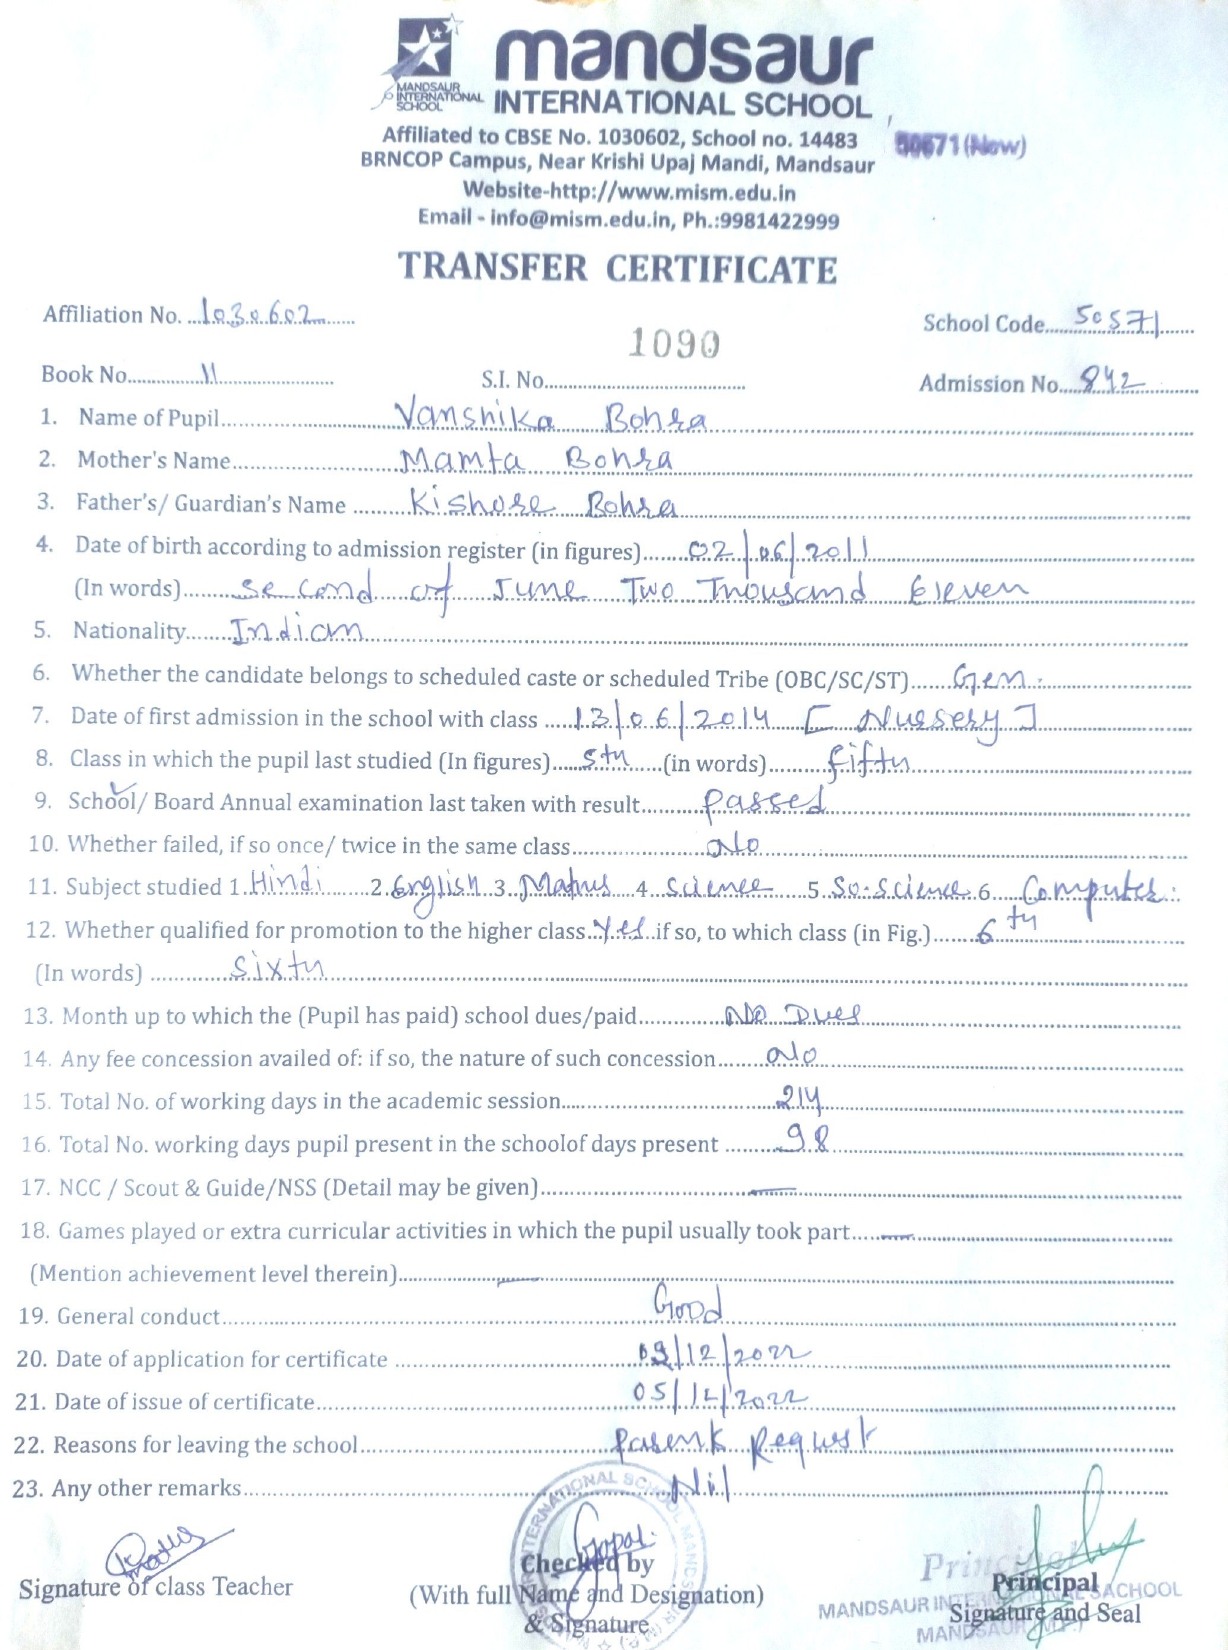 MANDSAUR
INTERNATIONAL
SCHOOL
mandsaur
INTERNATIONAL SCHOOL
Affiliated to CBSE No. 1030602, School no. 14483
(Now)
BRNCOP Campus, Near Krishi Upaj Mandi, Mandsaur
Website-http://www.mism.edu.in
Email - info@mism.edu.in, Ph.:9981422999
TRANSFER CERTIFICATE
Affiliation No. 1030602
School Code 50571
1090
Book No. 11 S.I. No. Admission No. 842
1. Name of Pupil Vanshika Bohra
2. Mother's Name Mamta Bohra
3. Father's/ Guardian's Name Kishore Bohra
4. Date of birth according to admission register (in figures) 02/06/2011
(In words) Second of June Two Thousand Eleven
5. Nationality Indian
6. Whether the candidate belongs to scheduled caste or scheduled Tribe (OBC/SC/ST) Gen.
7. Date of first admission in the school with class 13/06/2014 [Nursery]
8. Class in which the pupil last studied (In figures) 5th (in words) fifth
9. School/ Board Annual examination last taken with result Passed
10. Whether failed, if so once/ twice in the same class No
11. Subject studied 1. Hindi 2. English 3. Maths 4 Science 5. So. Science 6 Computer
12. Whether qualified for promotion to the higher class Yes if so, to which class (in Fig.) 6th
(In words) Sixth
13. Month up to which the (Pupil has paid) school dues/paid No Dues
14. Any fee concession availed of: if so, the nature of such concession No
15. Total No. of working days in the academic session 214
16. Total No. working days pupil present in the schoolof days present 98
17. NCC / Scout & Guide/NSS (Detail may be given)
18. Games played or extra curricular activities in which the pupil usually took part
(Mention achievement level therein)
19. General conduct Good
20. Date of application for certificate 03/12/2022
21. Date of issue of certificate 05/12/2022
22. Reasons for leaving the school Parent Request
23. Any other remarks Nil
Gopal
Signature of class Teacher
Checked by
(With full Name and Designation)
& Signature
Principal
Principal
MANDSAUR INTERNATIONAL SACHOOL
Signature and Seal
MANDSAUR (M.P.)